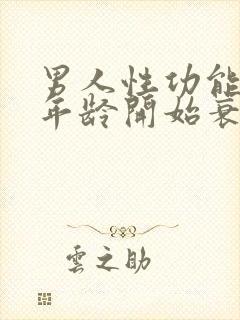 男人性功能
年龄開始衰
雲之助